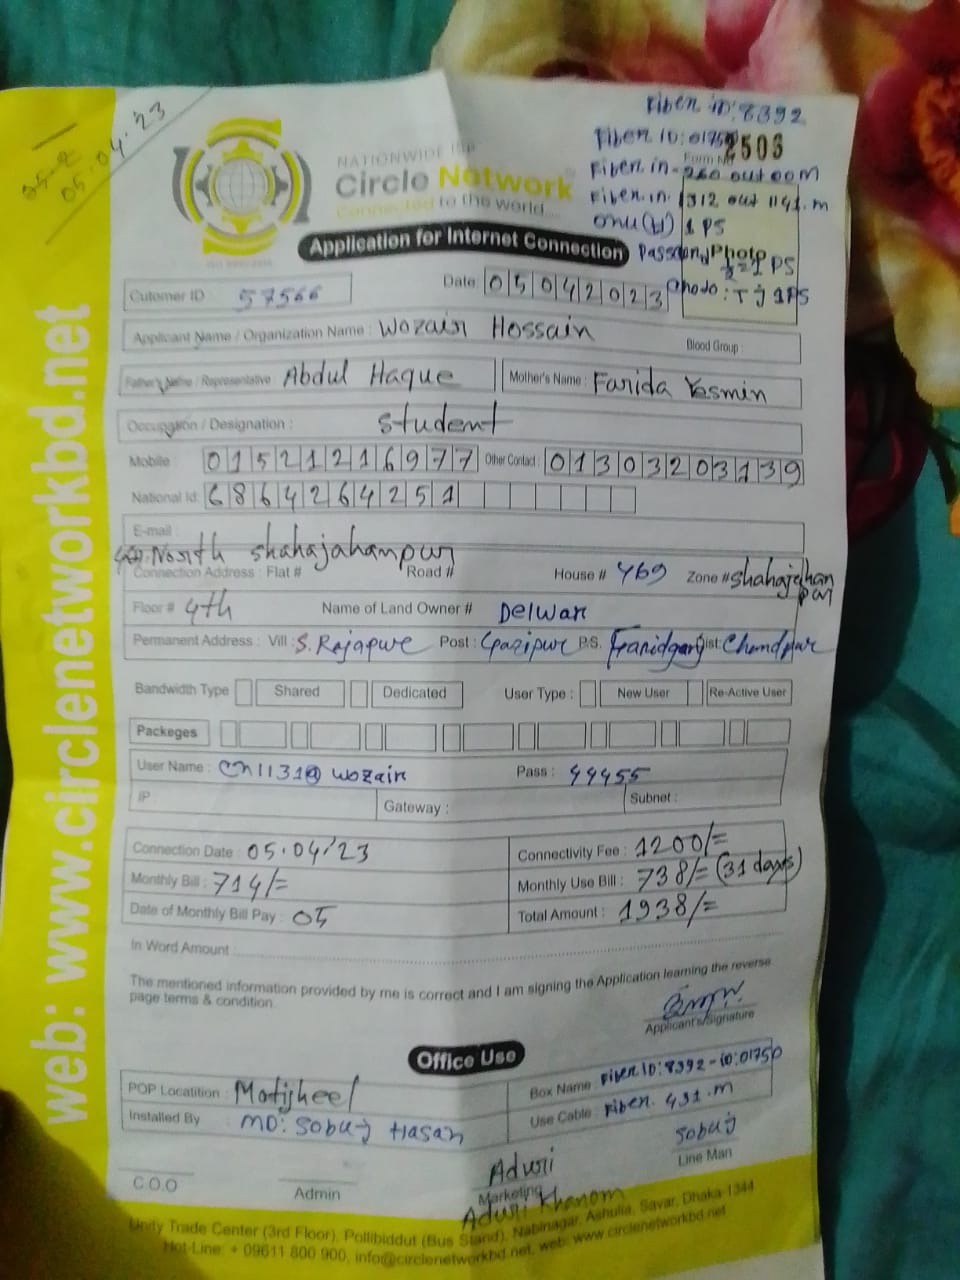 05.04.23
Fiber iD: 8392
Fiber iD: 0175
2503
Form No
Fiber in- out 00m
Fiber in. 1312 out 1141.m
onu(tj) 1 PS
Photo
PS
: Tj 1PS
NATIONWIDE ISP
Circle Network
Connected to the world....
Application for Internet Connection
Cutomer ID : 57566
Date: 05042023
Applicant Name / Organization Name : Wozair Hossain
Blood Group :
Father's Name / Representative Abdul Haque
Mother's Name : Farida Yesmin
Occupation / Designation : Student
Mobile : 01521216977 Other Contact : 01303203139
National Id: 6864264251
E-mail :
North shahajahanpur
Connection Address : Flat # Road # House # 469 Zone # shahajahan pur
Floor # 4th Name of Land Owner # Delwar
Permanent Address : Vill : S. Rajapure Post : Gazipure P.S. Faridganj Dist: Chandpur
Bandwidth Type Shared Dedicated User Type : New User Re-Active User
Packeges
User Name : Cn1131@wozair Pass : 44455
IP Gateway : Subnet :
Connection Date : 05.04/23 Connectivity Fee : 1200/=
Monthly Bill : 714/= Monthly Use Bill : 738/= (31 days)
Date of Monthly Bill Pay : 05 Total Amount : 1938/=
In Word Amount :
The mentioned information provided by me is correct and I am signing the Application learning the reverse
page terms & condition.
Applicant's/Signature
Office Use
POP Locatition : Motijheel Box Name : Fiber ID: 8392 - iD: 01750
Installed By : MD: Sobuj Hasan Use Cable : Fiber. 431.m
C.O.O
Admin
Aduri
Marketing
Aduri Khanom
Sobuj
Line Man
Unity Trade Center (3rd Floor), Pollibiddut (Bus Stand), Nabinagar, Ashulia, Savar, Dhaka-1344
Hot-Line: + 09611 800 900, info@circlenetworkbd.net, web: www.circlenetworkbd.net
web: www.circlenetworkbd.net